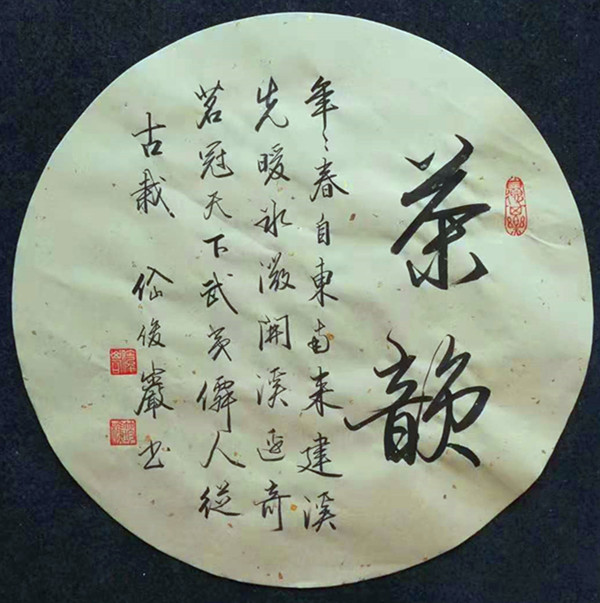 茶韻
年〻春自東南来建溪
先暖氷微開溪邊奇
茗冠天下武夷僊人從
古栽 俊巖书